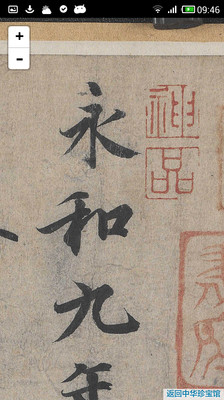 09:46
+
-
永和九年
神品
返回中华珍宝馆